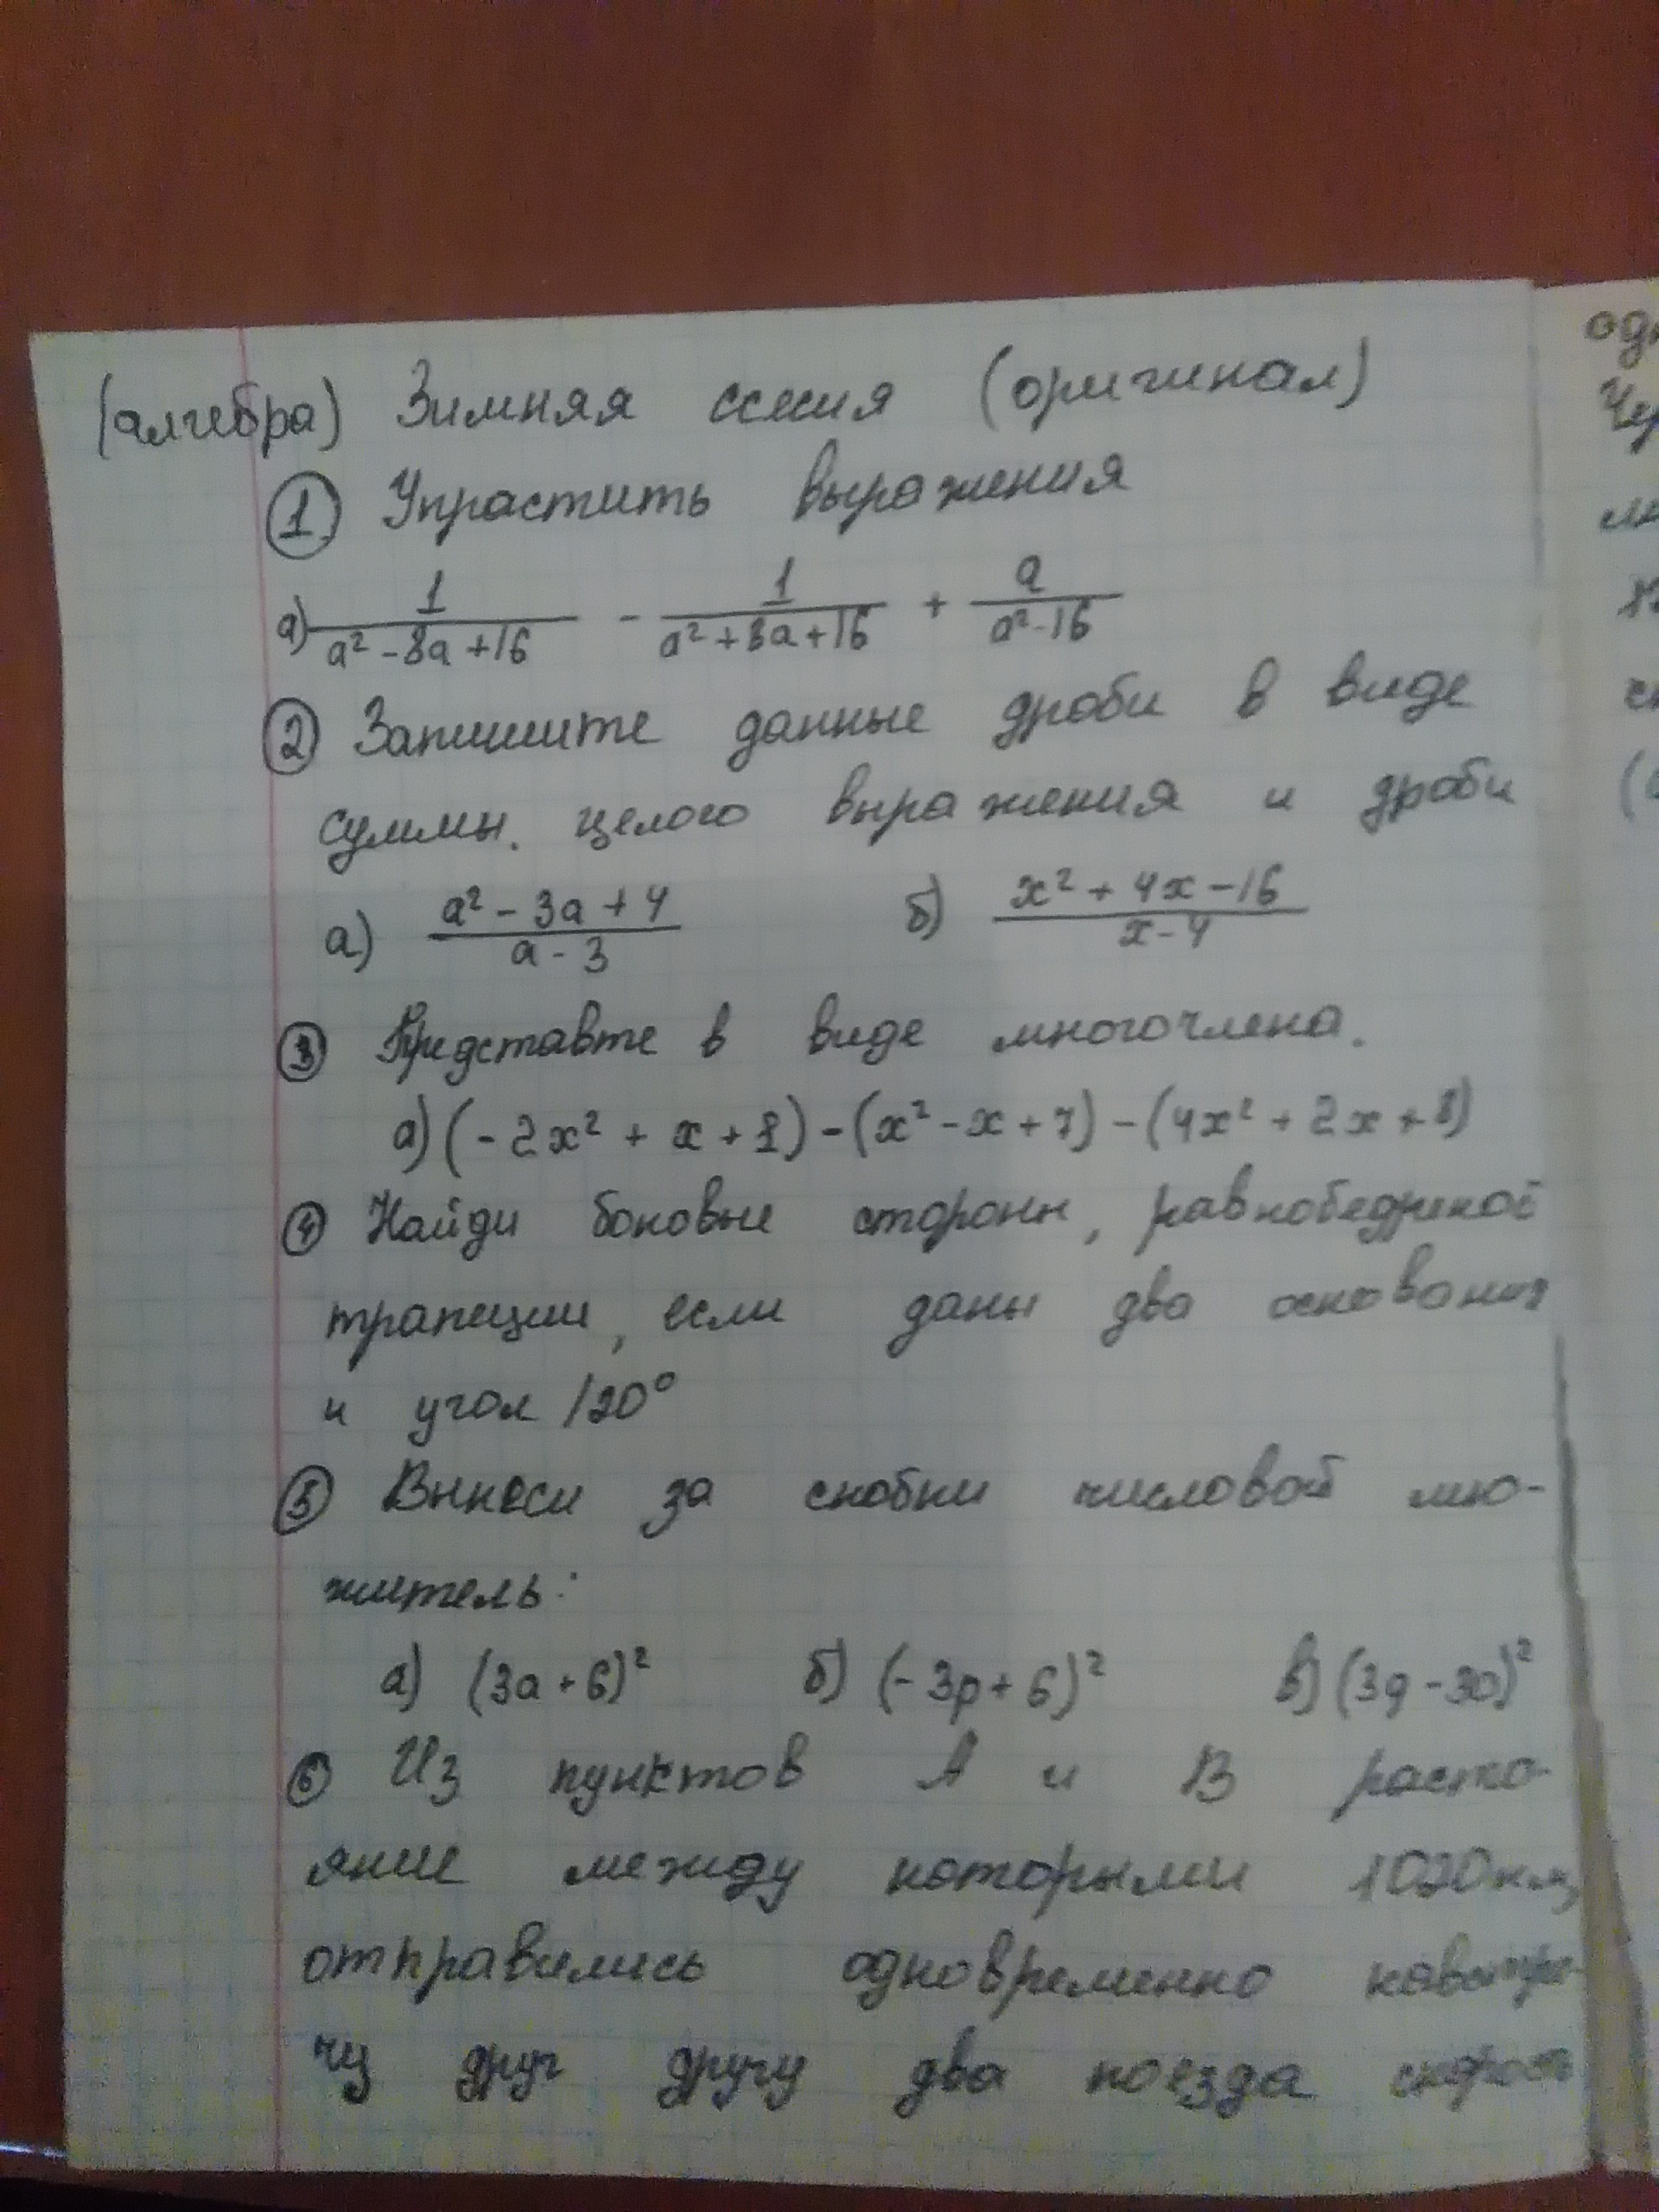 (алгебра) Зимняя сесия (оригинал)
① Упрастить выражения
а) 1/(a² - 8a + 16) - 1/(a² + 8a + 16) + a/(a² - 16)
② Запишите данные дроби в виде
суммы. целого выражения и дроби
а) (a² - 3a + 4)/(a - 3) б) (x² + 4x - 16)/(x - 4)
③ Представте в виде многочлена.
а) (- 2x² + x + 1) - (x² - x + 7) - (4x² + 2x + 8)
④ Найди боковые стороны, равнобедреной
трапеции, если даны два основания
и угол 120°
⑤ Выноси за скобки числовой мно-
житель:
а) (3a + 6)² б) (- 3p + 6)² в) (3q - 30)²
⑥ Из пунктов А и В расто-
яние между которыми 1020км,
отправились одновременно навстре-
чу друг другу два поезда скорость